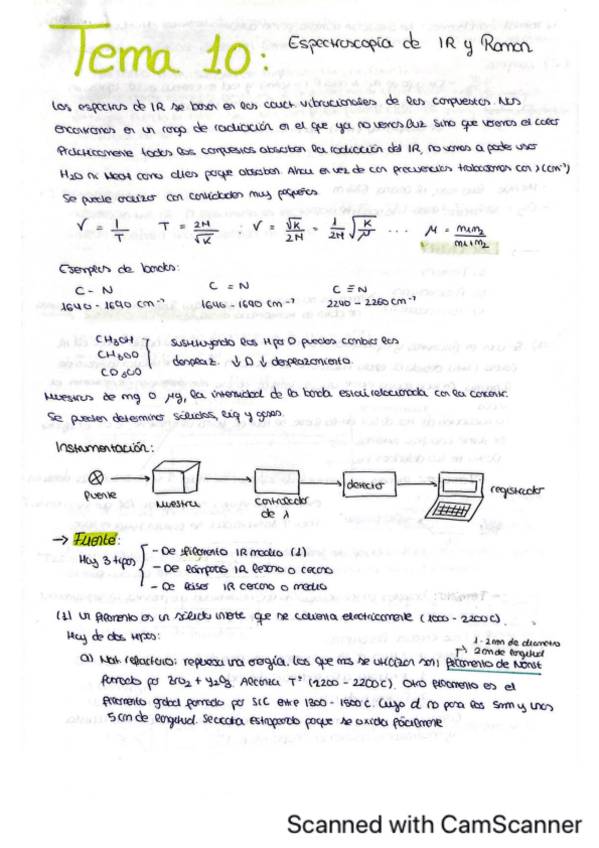 Tema 10: Espectroscopía de IR y Raman
Los espectros de IR se basan en las caract. vibracionales de los compuestos. Nos
encontramos en un rango de radiación en el que ya no vemos luz. Sino que vemos el calor
Prácticamente todos los compuestos absorben la radiación del IR, no vamos a poder usar
H2O ni MeOH como porque absorben. Ahora en vez de con frecuencias trabajamos con λ (cm⁻¹)
Se puede analizar con cantidades muy pequeñas.
V = 1/T T = 2π/√K : V = √K/2π = 1/2π √K/μ ... μ = m1m2/m1+m2
Ejemplos de bandas:
C - N C = N C ≡ N
1640 - 1690 cm⁻¹ 1640 - 1690 cm⁻¹ 2240 - 2260 cm⁻¹
CH3OH
CH3OD
CD3OD
sustituyendo los H por D puedes cambiar los
desplaz. ↓ D ↓ desplazamiento.
Muestras de mg o μg, la intensidad de la banda está relacionada con la concentr.
Se pueden determinar sólidos, líq y gases.
Instrumentación:
Fuente
Muestra
Controlador de λ
detector
registrador
→ Fuente:
Hay 3 tipos
- De filamento IR medio (1)
- De lámparas IR lejano o cercano
- De láser IR cercano o medio
(1) Un filamento es un sólido inerte que se calienta electricamente (1000 - 2200 C)
Hay de dos tipos:
1-2mm de diametro
2cm de longitud
a) Mat. refactario: requiere una energía. Los que mas se utilizan son: filamento de Nernst
formado por ZrO2 + Y2O3. Alcanza Tª (1200 - 2200ºC). Otro filamento es el
filamento global formado por SiC entre 1300 - 1500ºC. Cuyo d no pasa los 5mm y unos
5cm de longitud. porque se oxida fácilmente
Scanned with CamScanner